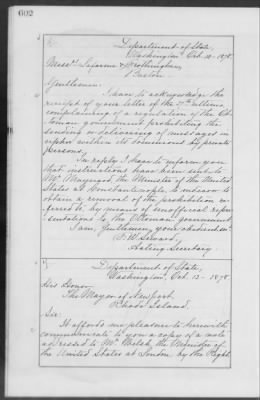 602
Department of State,
Washington, Oct. 12, 1878.
Messrs. &
Boston.
Gentlemen:
I have to acknowledge the
receipt of your letter of the 7th ultimo
complaining of a regulation of the Ot-
toman government prohibiting the
sending or delivering of messages in
cypher within its dominions by private
persons.
In reply I have to inform you
that instructions have been sent to
Mr. Maynard the Minister of the United
States at Constantinople, to endeavor to
obtain a removal of the prohibition re-
ferred to, by means of unofficial repre-
sentations to the Ottoman government.
I am, Gentlemen, your obedient
F. W. Seward,
Acting Secretary.
Department of State,
Washington, Oct. 12 - 1878
His Honor
The Mayor of Newport,
Rhode Island.
Sir:
It affords me pleasure to herewith
communicate to you a copy of a note
addressed to Mr. Welsh, the Minister of
the United States at London by the Right